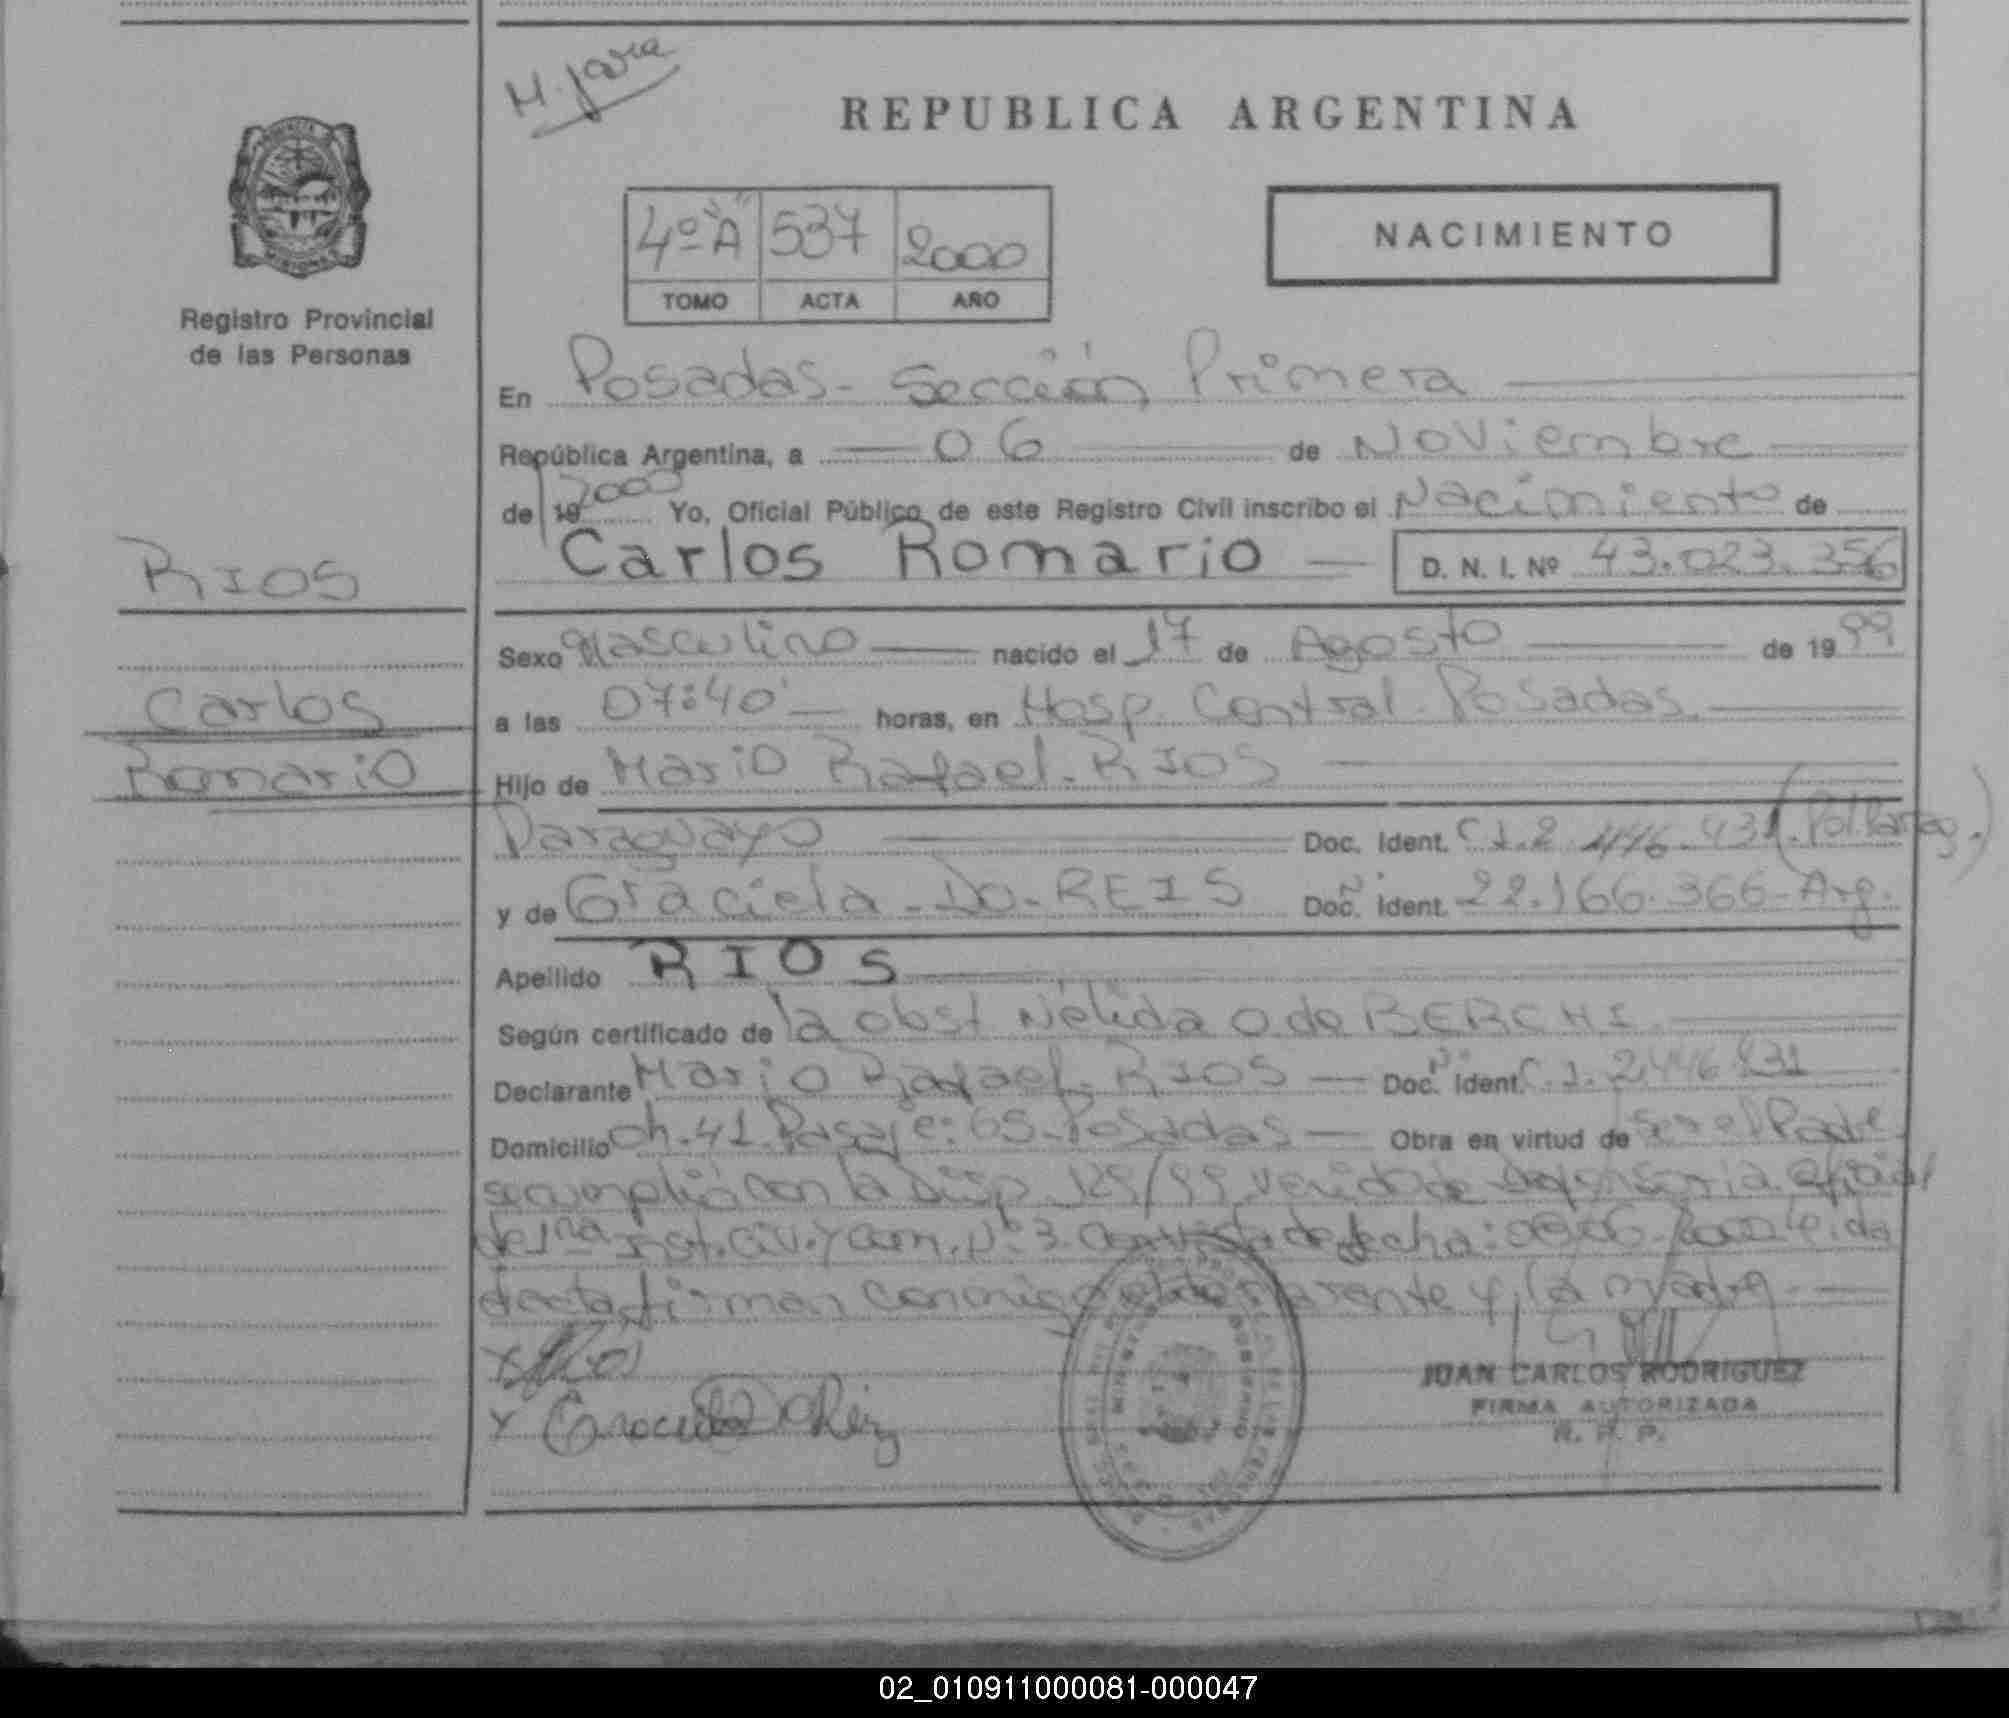 H. Jara
REPUBLICA ARGENTINA
4º "A" 537 2000
TOMO ACTA AÑO
NACIMIENTO
PROVINCIA DE MISIONES
Registro Provincial
de las Personas
En Posadas - Sección Primera
República Argentina, a 06 de Noviembre
de 19 2000 Yo, Oficial Público de este Registro Civil inscribo el Nacimiento de
Carlos Romario D. N. I. Nº 43.023.356
RIOS
Carlos
Romario
Sexo Masculino nacido el 17 de Agosto de 1999
a las 07:40' horas, en Hosp. Central Posadas.
Hijo de Mario Rafael - RIOS
Paraguayo Doc. Ident. C I. 2.446.431 (Pol. Parag.)
y de Graciela - DO - REIS Doc. Ident. 22.166.366 - Arg.
Apellido RIOS
Según certificado de la obst Nélida O de BERCHI
Declarante Mario Rafael - RIOS Doc. Ident. C. I. 2.446.431
Domicilio Ch. 41 Pasaje: 65 - Posadas Obra en virtud de ser el Padre
se cumplió con la Disp 129/99 venido de Defensoria oficial
de 1ra Inst. Civ. y Com. Nº 3 con vista de fecha: leida
el acta firman conmigo el declarante y la madre
JUAN CARLOS RODRIGUEZ
FIRMA AUTORIZADA
R. P. P.
02_010911000081-000047